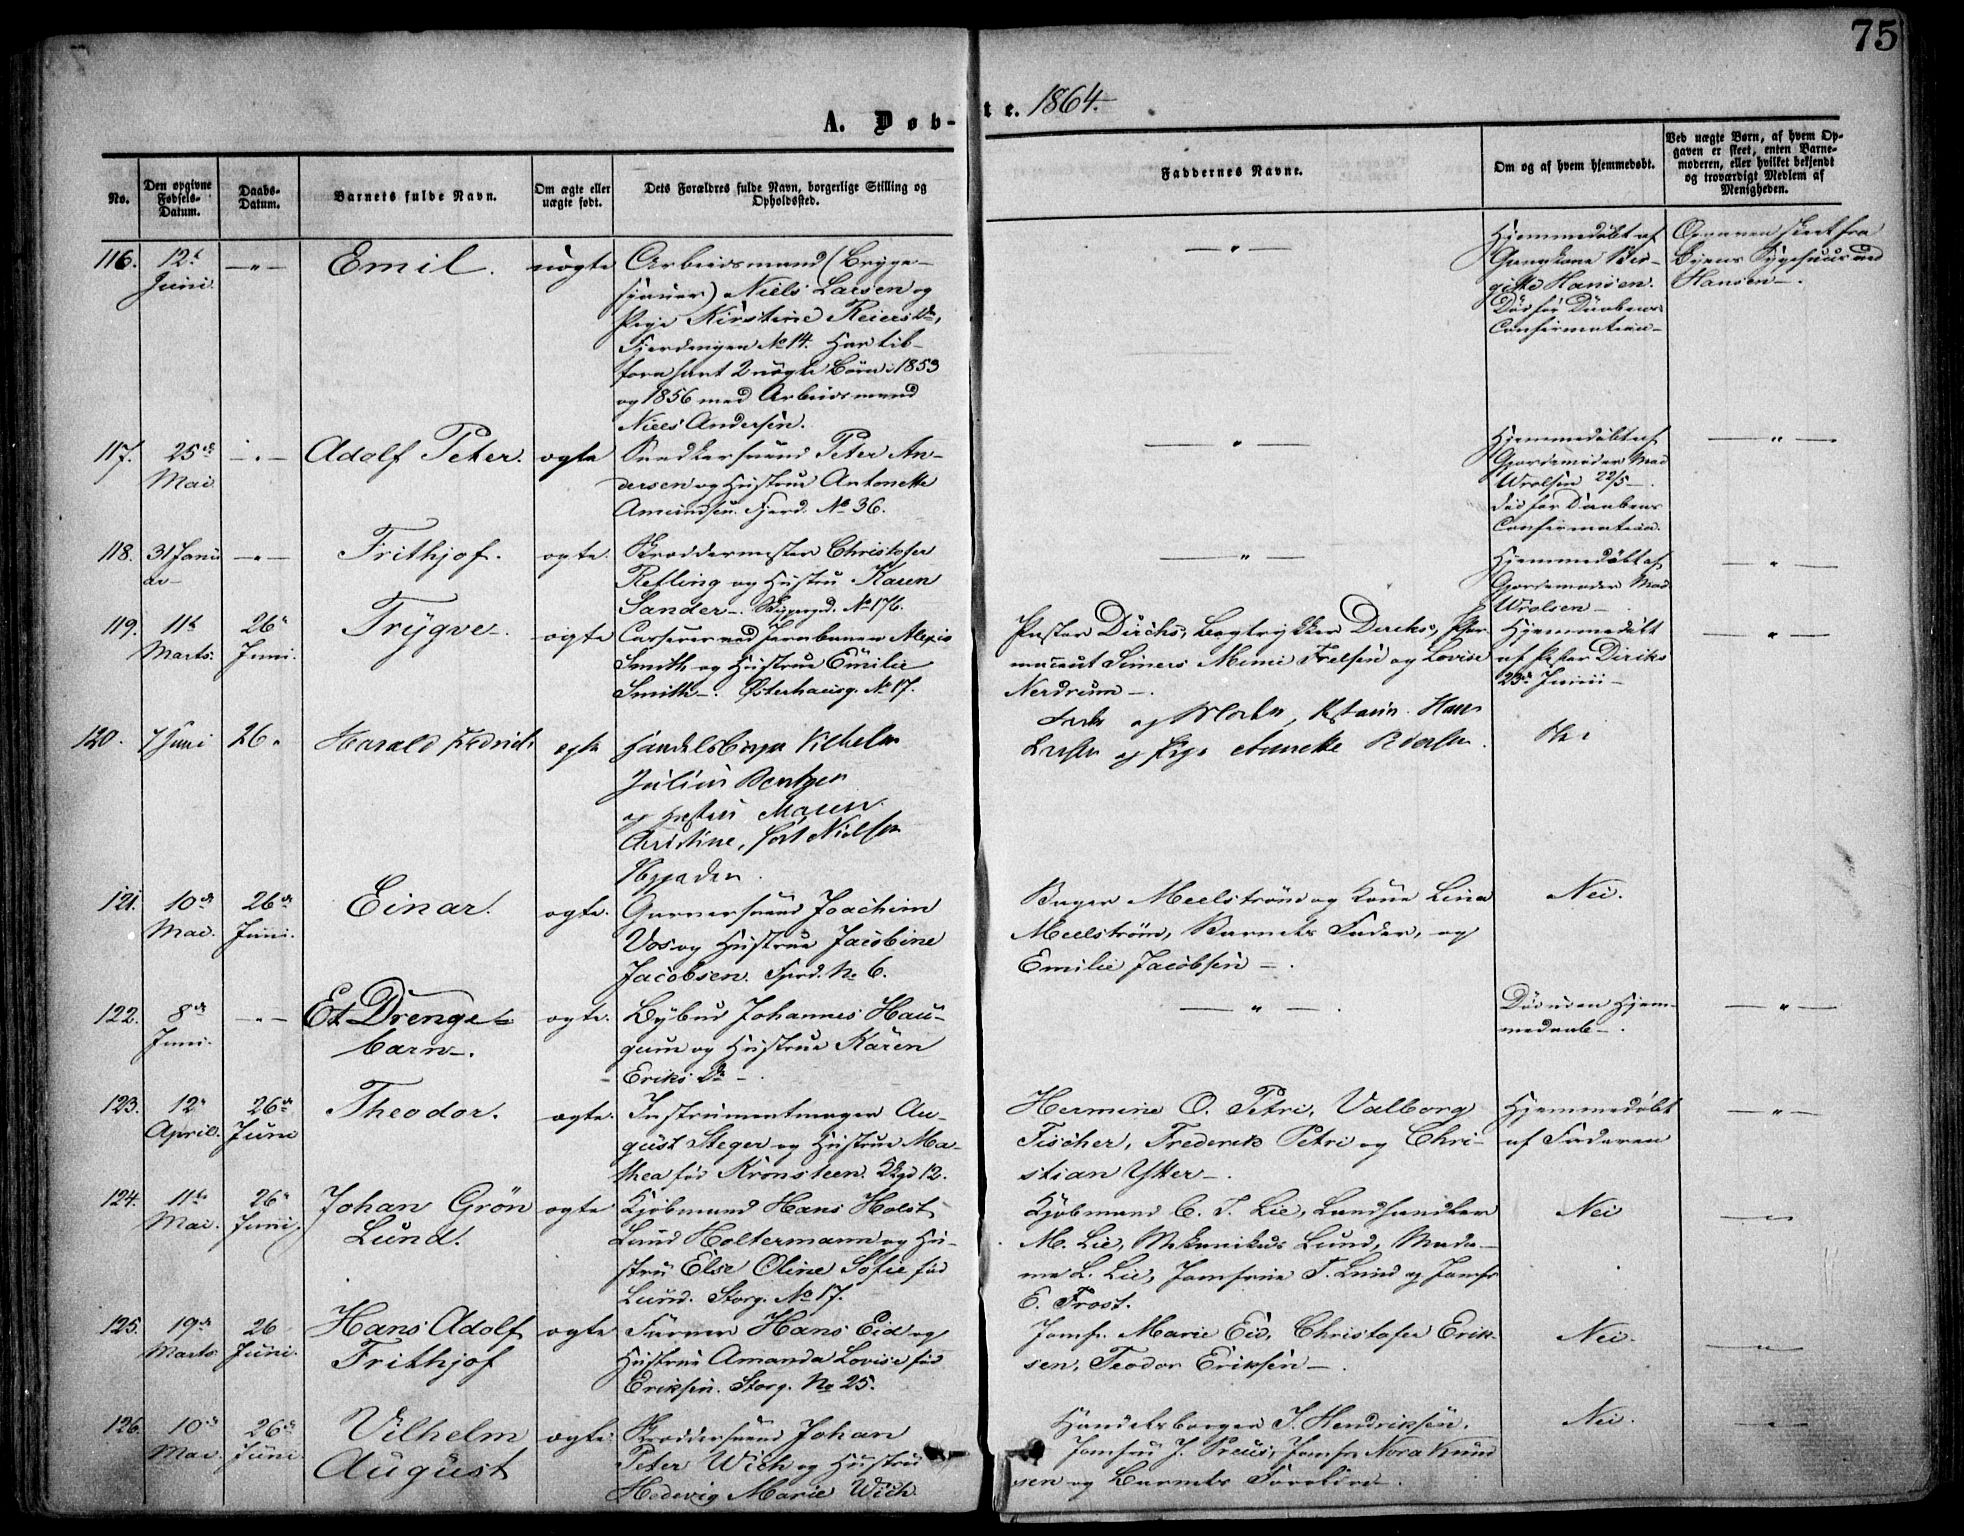 75
A. Døb-te. 1864.
No.
Den opgivne Fødsels-Datum.
Daabs-Datum.
Barnets fulde Navn.
Om ægte eller uægte født.
Dets Forældres fulde Navn, borgerlige Stilling og Opholdssted.
Faddernes Navne.
Om og af hvem hjemmedøbt.
Ved uægte Børn, af hvem Opgaven er skeet, enten Barnemoderen, eller hvilket bekjendt og troværdigt Medlem af Menigheden.
116. 12te Juni. — " — Emil. uægte
Arbeidsmand (Brygge-
sjauer) Niels Larsen og
Pige Kirstine Reiersdr,
Fjerdingen No 14. Har til-
forn havt 2 uægte Børn i 1853
og 1856 med Arbeidsmand
Niels Andersen.
— " —
Hjemmedøbt af
Gangkone Bir-
gitte Hansen.
Død før Daabens
Confirmation—
Opgaven skeet fra
Byens Sygehuus ved
Hansen—.
117. 25de Mai — " — Adolf Peter. ægte
Snedkersvend Peter An-
dersen og Hustrue Antonette
Amundsen. Fjerd. No 36.
— " —
Hjemmedøbt af
Gjordemoder Mad
Wrolsen 22/5 —.
død før Daabens
Confirmation.
— " —
118. 31 Janu
ar— — " — Frithjof. ægte.
Skræddermester Christofer
Refling og Hustru Karen
Sander—. No 176.
— " —
Hjemmedøbt af
Gjordemoder Mad
Wrolsen —
— " —
119. 11te Marts. 26de Juni. Trygve—. ægte
Casserer ved Jernbanen Alexis
Smith og Hustrue Emilie
Smith—. Østerhausg. No 17.
Pastor Diriks, Bogtrykker Diriks,
Mimi og Lovise
Nerdrum —.
Hjemmedøbt
af Pastor Diriks
23de Juni —
— " —
120. 7 Juni 26 " Harald Fredrich ægte
Handelsborger Vilhelm
Julius Bentzen
og Hustru Maren
Christine, født Nielsen
og Moder, Hans
Larsen og Pige Annette
121. 10de Mai. 26de Juni. Einar. ægte.
Garversvend Joachim
Vos og Hustrue Jacobine
Jacobsen. Fjerd. No 6.
Bager Meelstrøm og Kone Lina
Meelstrøm, Barnets Fader, og
Emilie Jacobsen —.
Nei.
122. 8de Juni. — " — Et Drenge-
barn—. ægte.
Bybud Johannes Hau-
gum og Hustrue Karen
Eriksdr —.
— " —.
Død uden Hjem-
medaab—.
— " —
123. 12te April. 26de Juni Theodor. ægte.
Instrumentmager Au-
gust Steger og Hustrue Ma-
thea fød Kronsteen. 12.
Hermine O. Petri, Valborg
Fischer, Frederik Petri og Chri-
stian Ytter—.
Hjemmedøbt
af Faderen
— " —
124. 11te Mai. 26de Juni, Johan Grøn
Lund. ægte
Kjøbmand Hans Holst
Lund Holtermann og Hu-
stru Else Oline Sofie fød
Lund. Storg. No 17.
Kjøbmand C. T. Lie, Landhandler
M. Lie, Mekanikus Lund, Mada-
me L. Lie, Jomfrue T. Lund og Jomfr
E. Frost.
Nei
— " —
125. 19de Marts 26 Juni. Hans Adolf
Frithjof ægte
Farver Hans Eid og
Hustrue Amanda Lovise fød
Eriksen. Storg. No 25.
Jomfr. Marie Eid, Christofer Erik-
sen, Teodor Eriksen —.
Nei.
— " —
126. 10de Mai. 26de Juni Vilhelm
August ægte
Skræddersvend Johan
Peter Wich og Hustru
Hedevig Marie Wich.
Handelsborger J. Hendriksen,
Jomfru J. Preus, Jomfr Nora Knud
sen og Barnets Forældre —.
Nei.
— " —